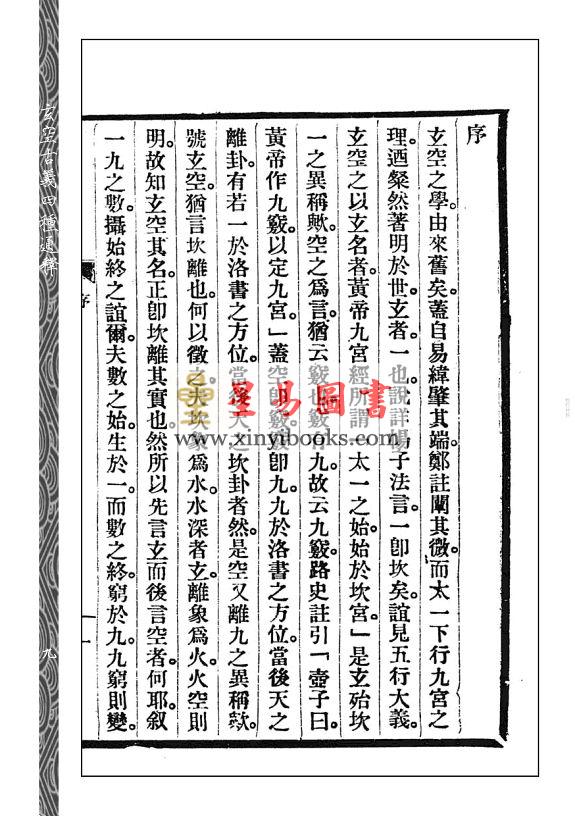 序
玄空之學。由來舊矣。蓋自易緯肇其端。鄭註闡其微。而太一下行九宮之
理。迺粲然著明於世。玄者。一也。說詳楊子法言。一卽坎矣。誼見五行大義。
玄空之以玄名者。黃帝九宮經所謂「太一之始。始於坎宮。」是玄殆坎
一之異稱歟。空之爲言。猶云竅也。竅有九。故云九竅。路史註引「壺子曰。
黃帝作九竅。以定九宮。」蓋空卽竅。竅卽九。九於洛書之方位。當後天之
離卦。有若一於洛書之方位。當後天之坎卦者然。是空又離九之異稱歟。
號玄空。猶言坎離也。何以徵之。夫坎象爲水。水深者玄。離象爲火。火空則
明。故知玄空其名。正卽坎離其實也。然所以先言玄而後言空者。何耶。叙
一九之數。攝始終之誼爾。夫數之始。生於一。而數之終。窮於九。九窮則變。
序
一
玄空古義四種通釋
九
星易圖書
www.xinyibooks.com